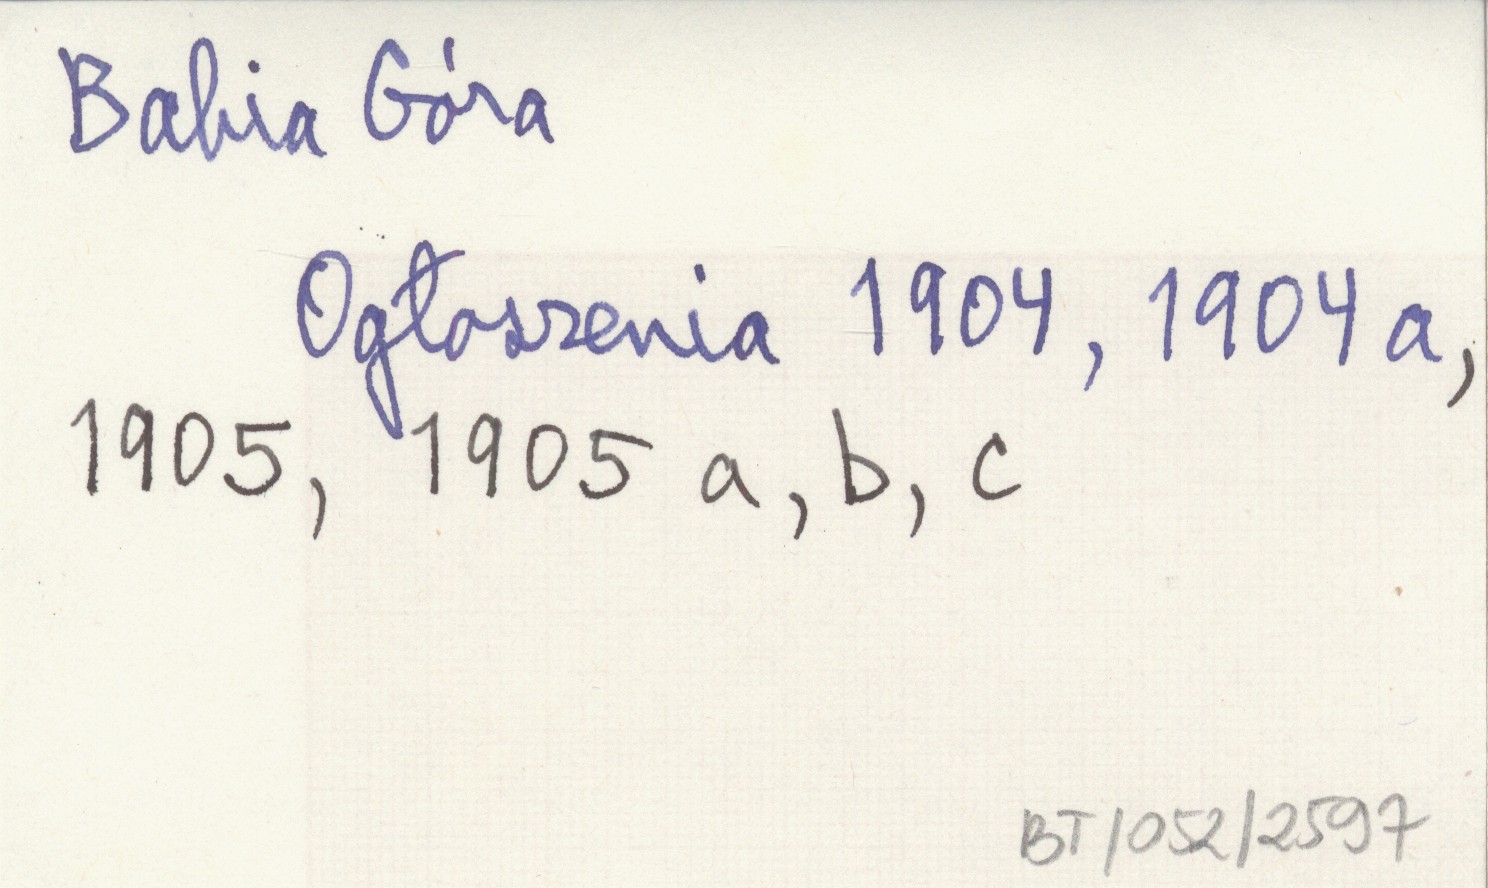 Babia Góra
Ogłoszenia 1904, 1904 a,
1905, 1905 a, b, c
BT/052/2597